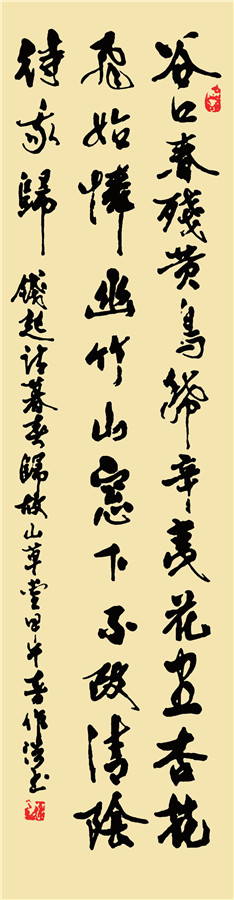 谷口春殘黄鳥稀辛夷花盡杏花
飛始憐幽竹山窗下不改清陰
待我歸 錢起詩暮春歸故山草堂甲午春作